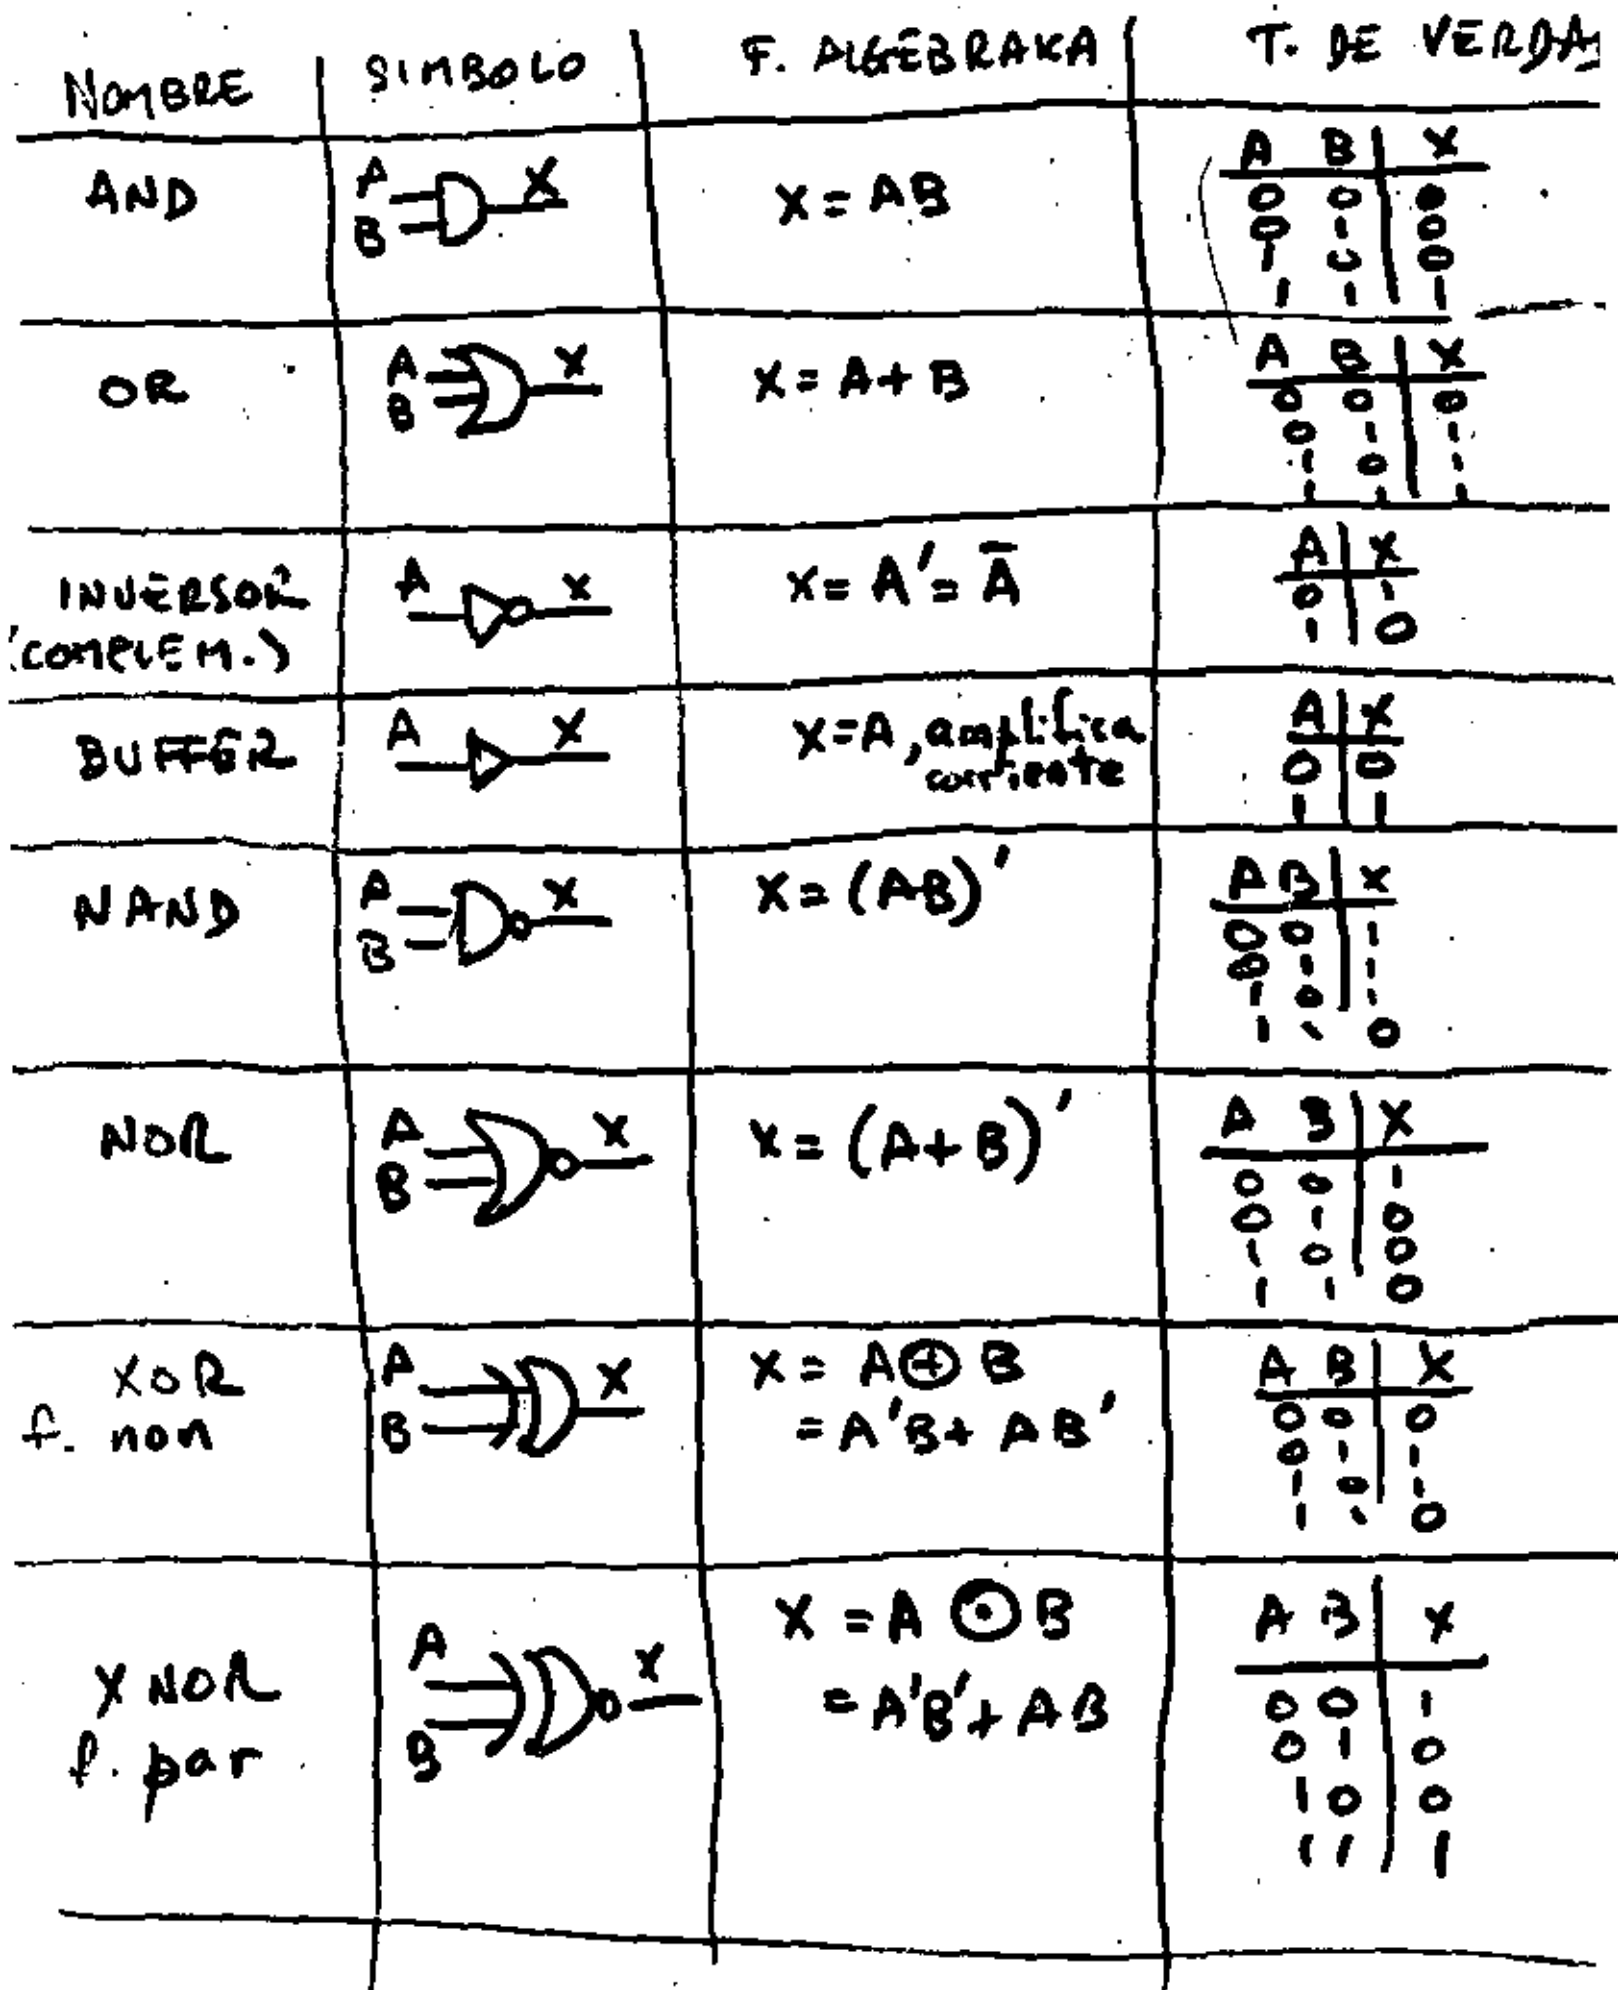 NOMBRE SIMBOLO F. ALGEBRAKA T. DE VERDA
AND A B X X = AB
A B X
0 0 0
0 1 0
1 0 0
1 1 1
OR A B X X = A + B
A B X
0 0 0
0 1 1
1 0 1
1 1 1
INVERSOR A X X = A' = Ā
(COMPLEM.)
A X
0 1
1 0
BUFFER A X X=A, amplifica
corriente
A X
0 0
1 1
NAND A B X X = (AB)'
A B X
0 0 1
0 1 1
1 0 1
1 1 0
NOR A B X X = (A + B)'
A B X
0 0 1
0 1 0
1 0 0
1 1 0
XOR A B X X = A ⊕ B
f. non = A'B + AB'
A B X
0 0 0
0 1 1
1 0 1
1 1 0
XNOR A B X X = A ⊙ B
f. par = A'B' + AB
A B X
0 0 1
0 1 0
1 0 0
1 1 1